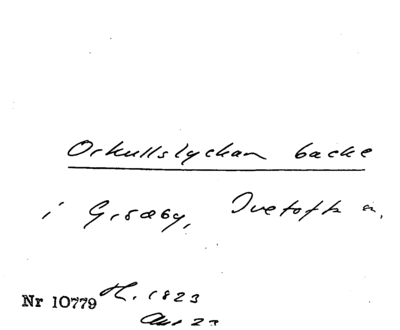 Orkullslyckan backe
i Grisaby, Ivetofta n.
Nr 10779 H. 1823